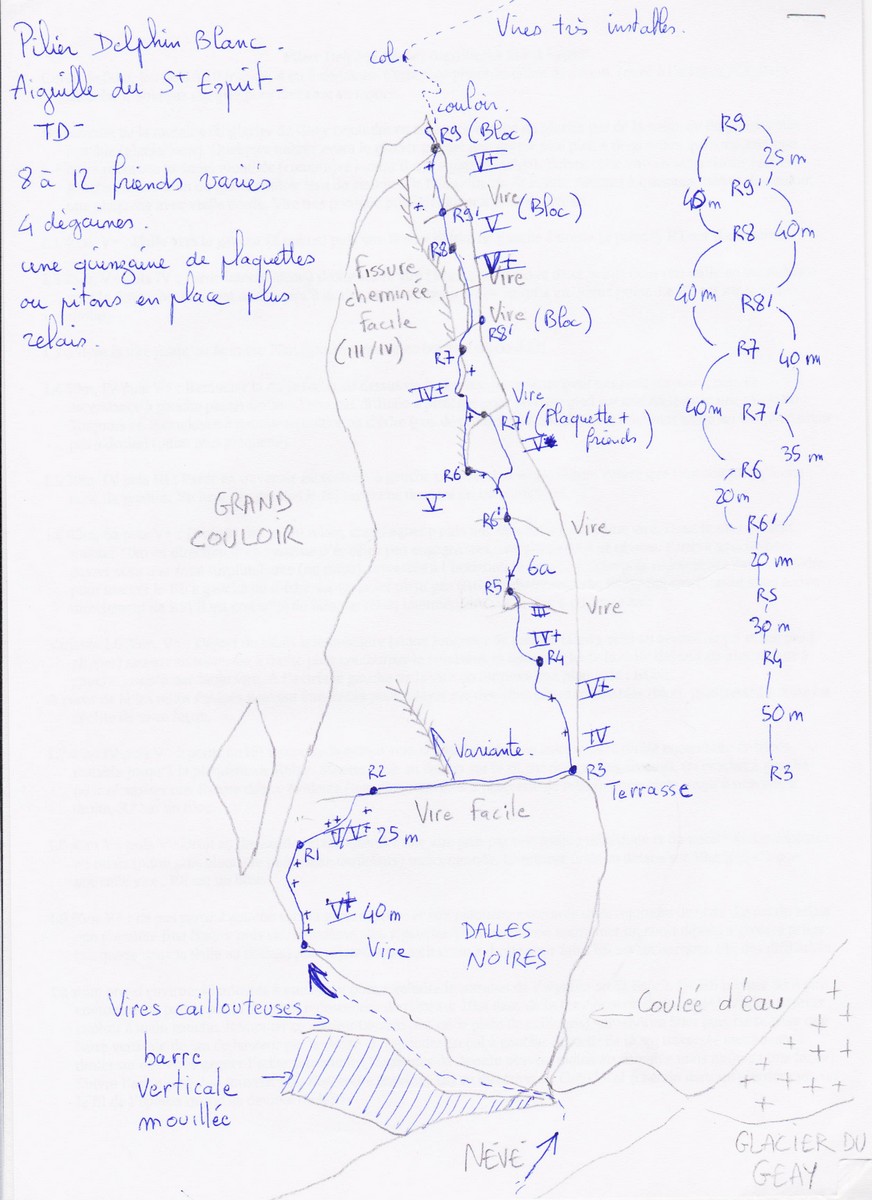 Pilier Dolphin Blanc.
Aiguille du St Esprit.
TD-
8 à 12 friends variés
4 dégaines.
une quinzaine de plaquettes
ou pitons en place plus
relais.
Vires très instables.
col
couloir.
R9 (Bloc)
V+
Vire
R9' (Bloc)
V
R8
V+
Vire
Fissure
cheminée
Facile
(III/IV)
Vire
R8' (Bloc)
R7
IV+
Vire
R7' (Plaquette +
friends)
V
R6
V
R6'
Vire
6a
R5
Vire
III
IV+
R4
V+
IV
GRAND
COULOIR
Variante.
R2
R3
Terrasse
Vire facile
V/V+ 25 m
R1
V+ 40 m
Vire
DALLES
NOIRES
Vires caillouteuses
Coulée d'eau
barre
verticale
mouillée
NÉVÉ
GLACIER DU
GEAY
R9
25 m
R9'
40 m
R8
40 m
40 m
R8'
R7
40 m
40 m
R7'
35 m
R6
20 m
R6'
20 m
R5
30 m
R4
50 m
R3